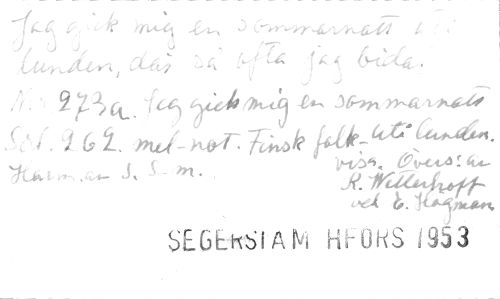 Jag gick mig en sommarnatt uti
lunden, där så ofta jag bida.
No. 273a. Jag gick mig en sommarnatt
uti lunden.
Sof. 262. mel-not. Finsk folk-
visa. Övers: av
Harm. av S. S-m.
R. Wetterhoff
och E. Hagman
SEGERSTAM HFORS 1953